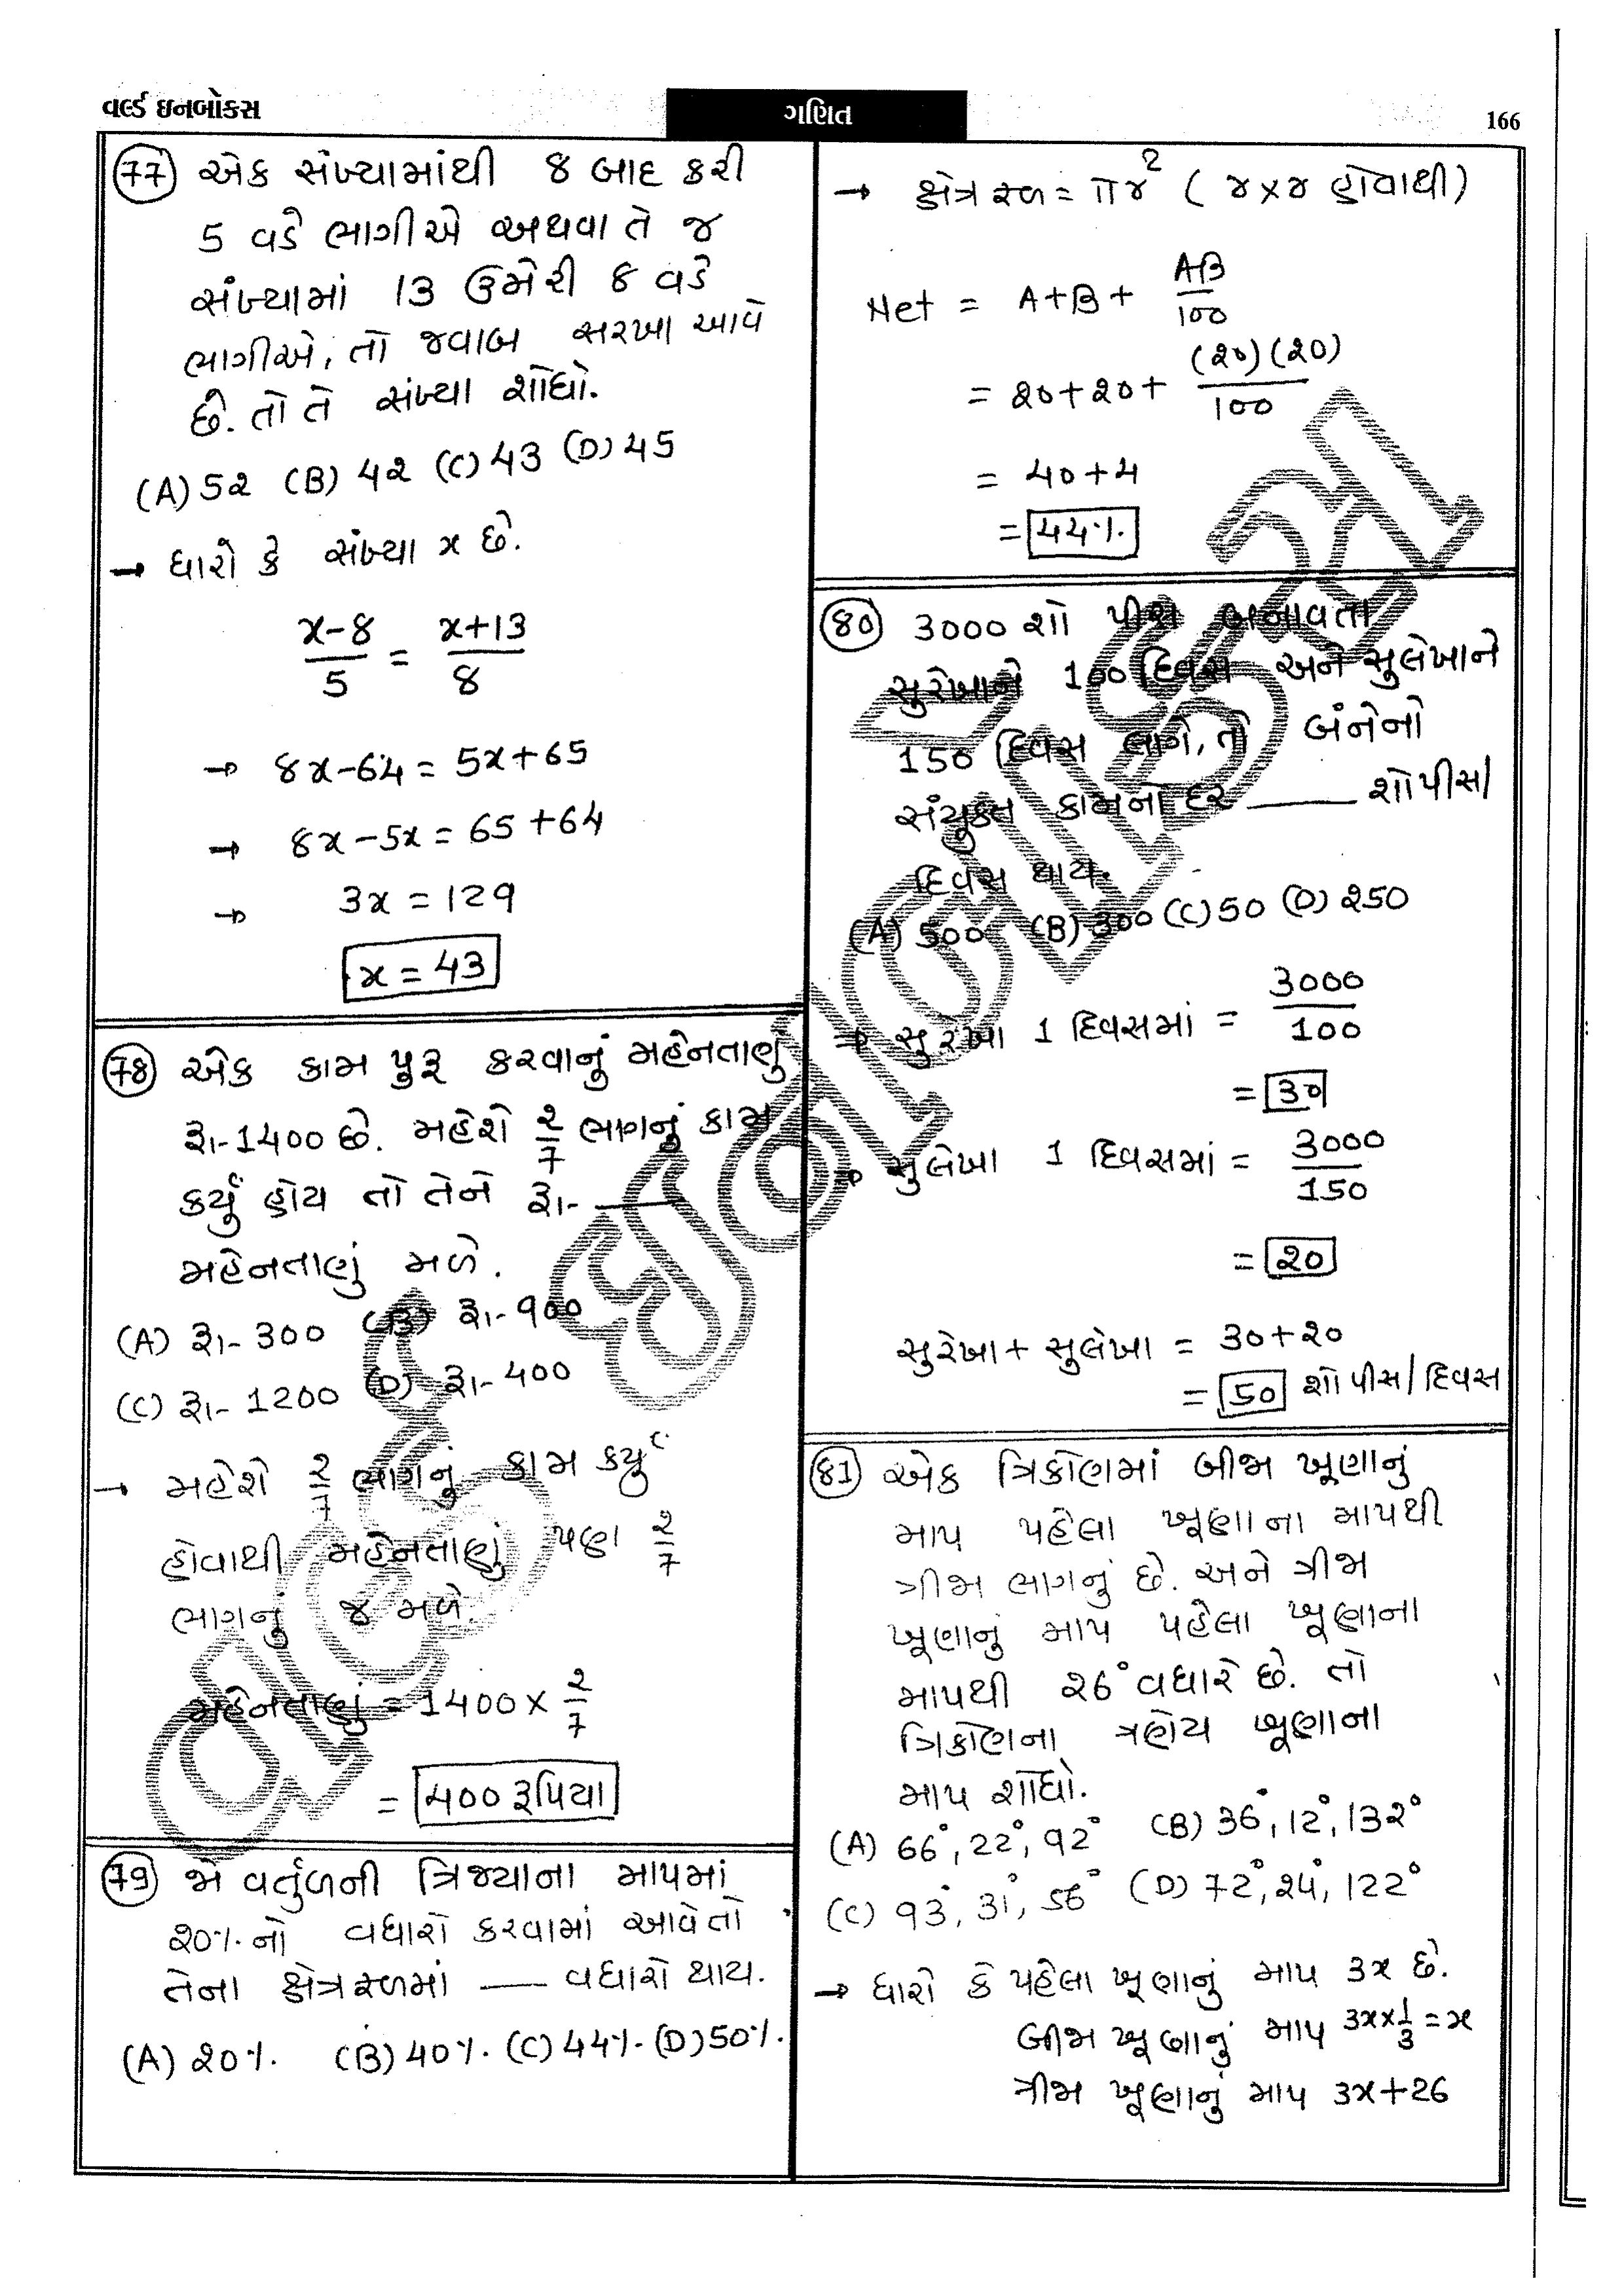 વર્લ્ડ ઇનબોકસ
ગણિત
166
(77) એક સંખ્યામાંથી 8 બાદ કરી
5 વડે ભાગીએ અથવા તે જ
સંખ્યામાં 13 ઉમેરી 8 વડે
ભાગીએ, તો જવાબ સરખા આવે
છે. તો તે સંખ્યા શોધો.
(A) 52 (B) 42 (C) 43 (D) 45
→ ધારો કે સંખ્યા x છે.
(x-8)/5 = (x+13)/8
→ 8x-64 = 5x+65
→ 8x-5x = 65+64
→ 3x = 129
x = 43
(78) એક કામ પુરૂ કરવાનું મહેનતાણું
રૂા- 1400 છે. મહેશે 2/7 ભાગનું કામ
કર્યું હોય તો તેને રૂા- ____
મહેનતાણું મળે.
(A) રૂા- 300 (B) રૂા- 900
(C) રૂા- 1200 (D) રૂા- 400
→ મહેશે 2/7 ભાગનું કામ કર્યુ
હોવાથી મહેનતાણું પણ 2/7
ભાગનું જ મળે.
મહેનતાણું = 1400 × 2/7
= 400 રૂપિયા
(79) જો વર્તુળની ત્રિજ્યાના માપમાં
20% નો વધારો કરવામાં આવે તો
તેના ક્ષેત્રફળમાં ___ વધારો થાય.
(A) 20% (B) 40% (C) 44% (D) 50%
→ ક્ષેત્રફળ = πr² ( r×r હોવાથી)
Net = A+B+ AB/100
= 20+20+ (20)(20)/100
= 40+4
= 44%
(80) 3000 શો પીસ બનાવતા
સુરેખાને 100 દિવસ અને સુલેખાને
150 દિવસ લાગે, તો બંનેનો
સંયુક્ત કામનો દર ____ શોપીસ/
દિવસ થાય.
(A) 500 (B) 300 (C) 50 (D) 250
→ સુરેખા 1 દિવસમાં = 3000/100
= 30
→ સુલેખા 1 દિવસમાં = 3000/150
= 20
સુરેખા + સુલેખા = 30+20
= 50 શો પીસ/દિવસ
(81) એક ત્રિકોણમાં બીજા ખૂણાનું
માપ પહેલા ખૂણાના માપથી
ત્રીજા ભાગનું છે. અને ત્રીજા
ખૂણાનું માપ પહેલા ખૂણાના
માપથી 26° વધારે છે. તો
ત્રિકોણના ત્રણેય ખૂણાના
માપ શોધો.
(A) 66°, 22°, 92° (B) 36°, 12°, 132°
(C) 93°, 31°, 56° (D) 72°, 24°, 122°
→ ધારો કે પહેલા ખૂણાનું માપ 3x છે.
બીજા ખૂણાનું માપ 3x×1/3 = x
ત્રીજા ખૂણાનું માપ 3x+26